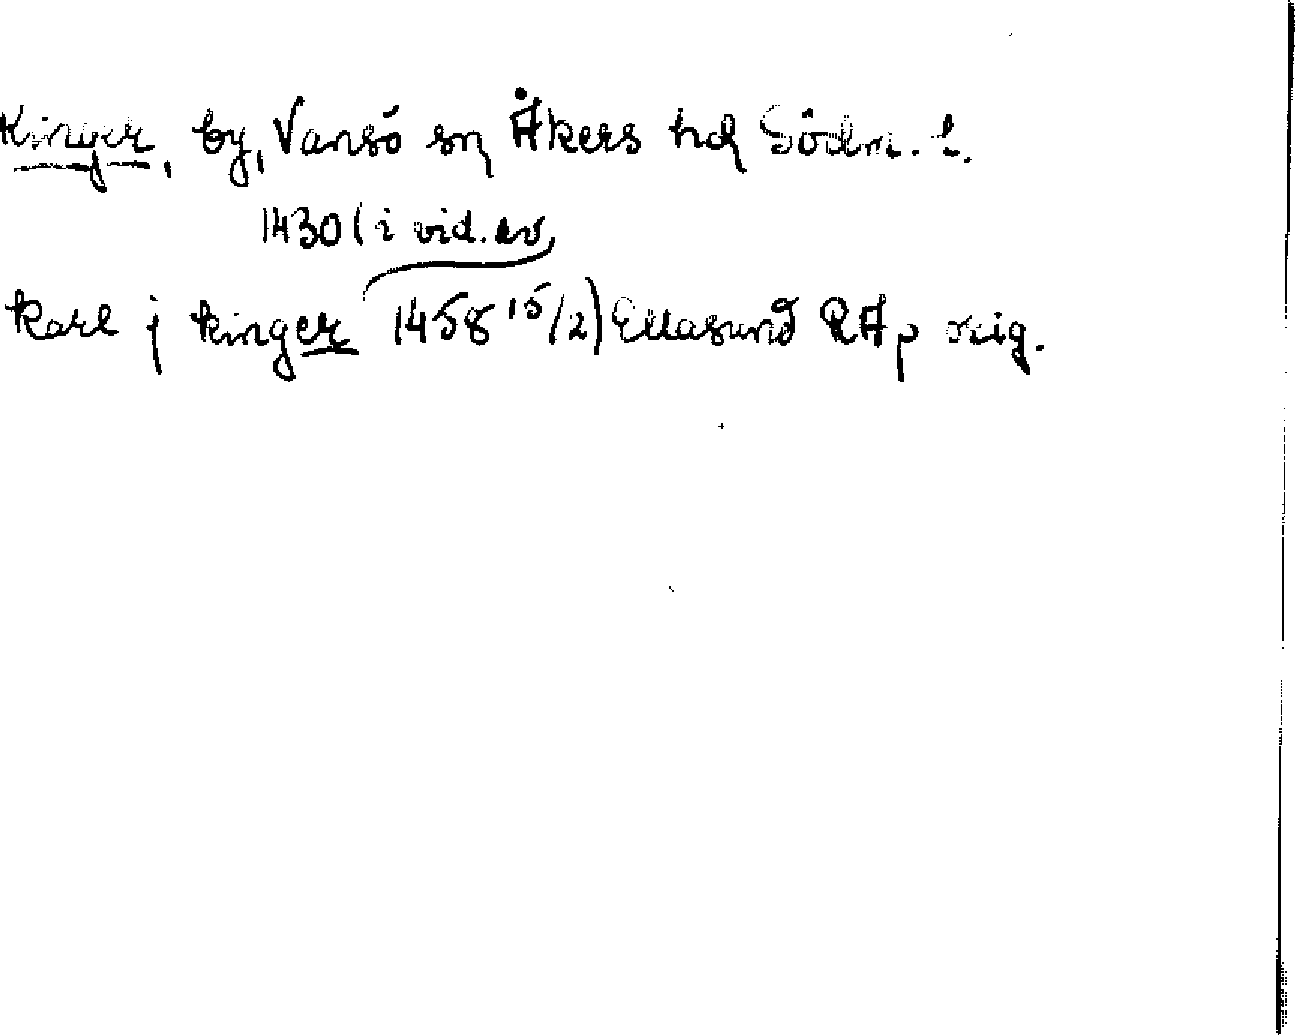 Kinger, by, Vansö sn, Åkers hd Södm. l.
1430 (i vid. av
Karl j kinger 1458 15/2) Ellasund RAp orig.